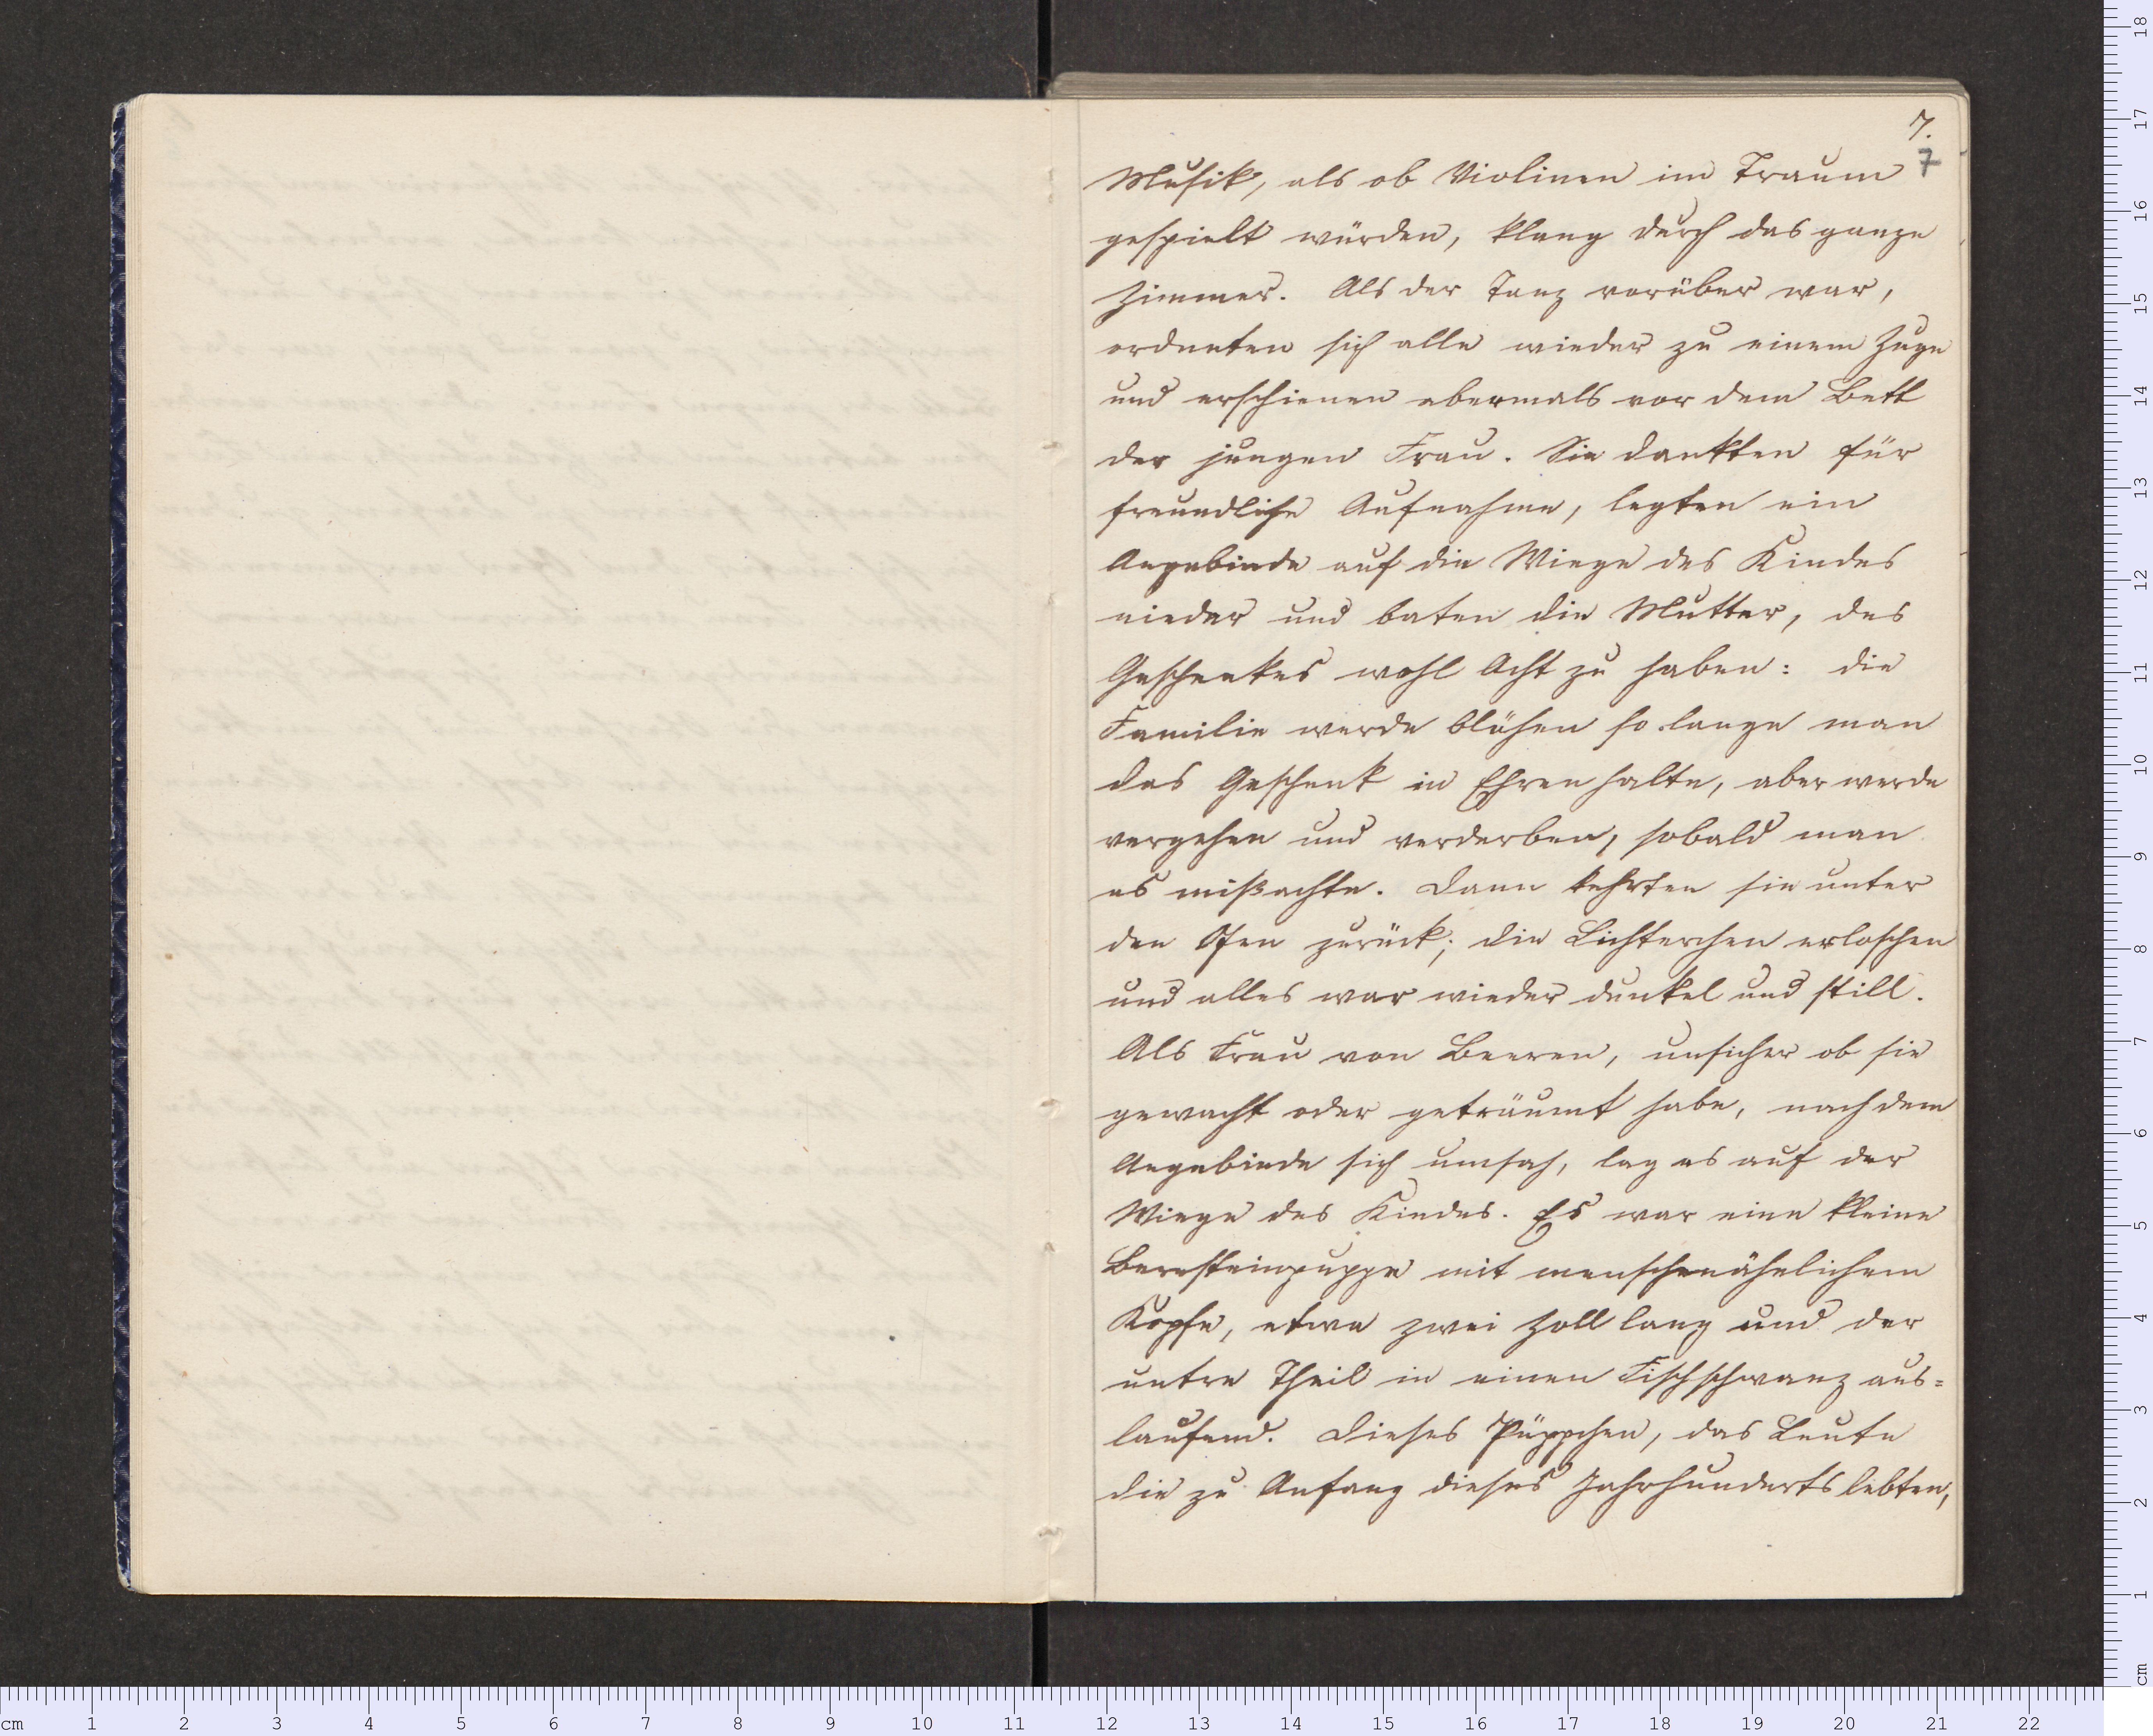 7.
7
Musik, als ob Violinen im Traum
gespielt würden, klang durch das ganze
Zimmer. Als der Tanz vorüber war,
ordneten sich alle wieder zu einem Zuge
und erschienen abermals vor dem Bett
der jungen Frau. Sie dankten für
freundliche Aufnahme, legten ein
Angebinde auf die Wiege des Kindes
nieder und baten die Mutter, des
Geschenkes wohl Acht zu haben: die
Familie werde blühen so lange man
das Geschenk in Ehren halte, aber werde
vergehen und verderben, sobald man
es mißachte. Dann kehrten sie unter
den Ofen zurück; die Lichterchen erloschen
und alles war wieder dunkel und still.
Als Frau von Beeren, unsicher ob sie
gewacht oder geträumt habe, nach dem
Angebinde sich umsah, lag es auf der
Wiege des Kindes. Es war eine kleine
Bernsteinpuppe mit menschenähnlichem
Kopfe, etwa zwei Zoll lang und der
untre Theil in einen Fischschwanz aus=
laufend. Dieses Püppchen, das Leute
die zu Anfang dieses Jahrhunderts lebten,
cm 1 2 3 4 5 6 7 8 9 10 11 12 13 14 15 16 17 18 19 20 21 22
cm 1 2 3 4 5 6 7 8 9 10 11 12 13 14 15 16 17 18